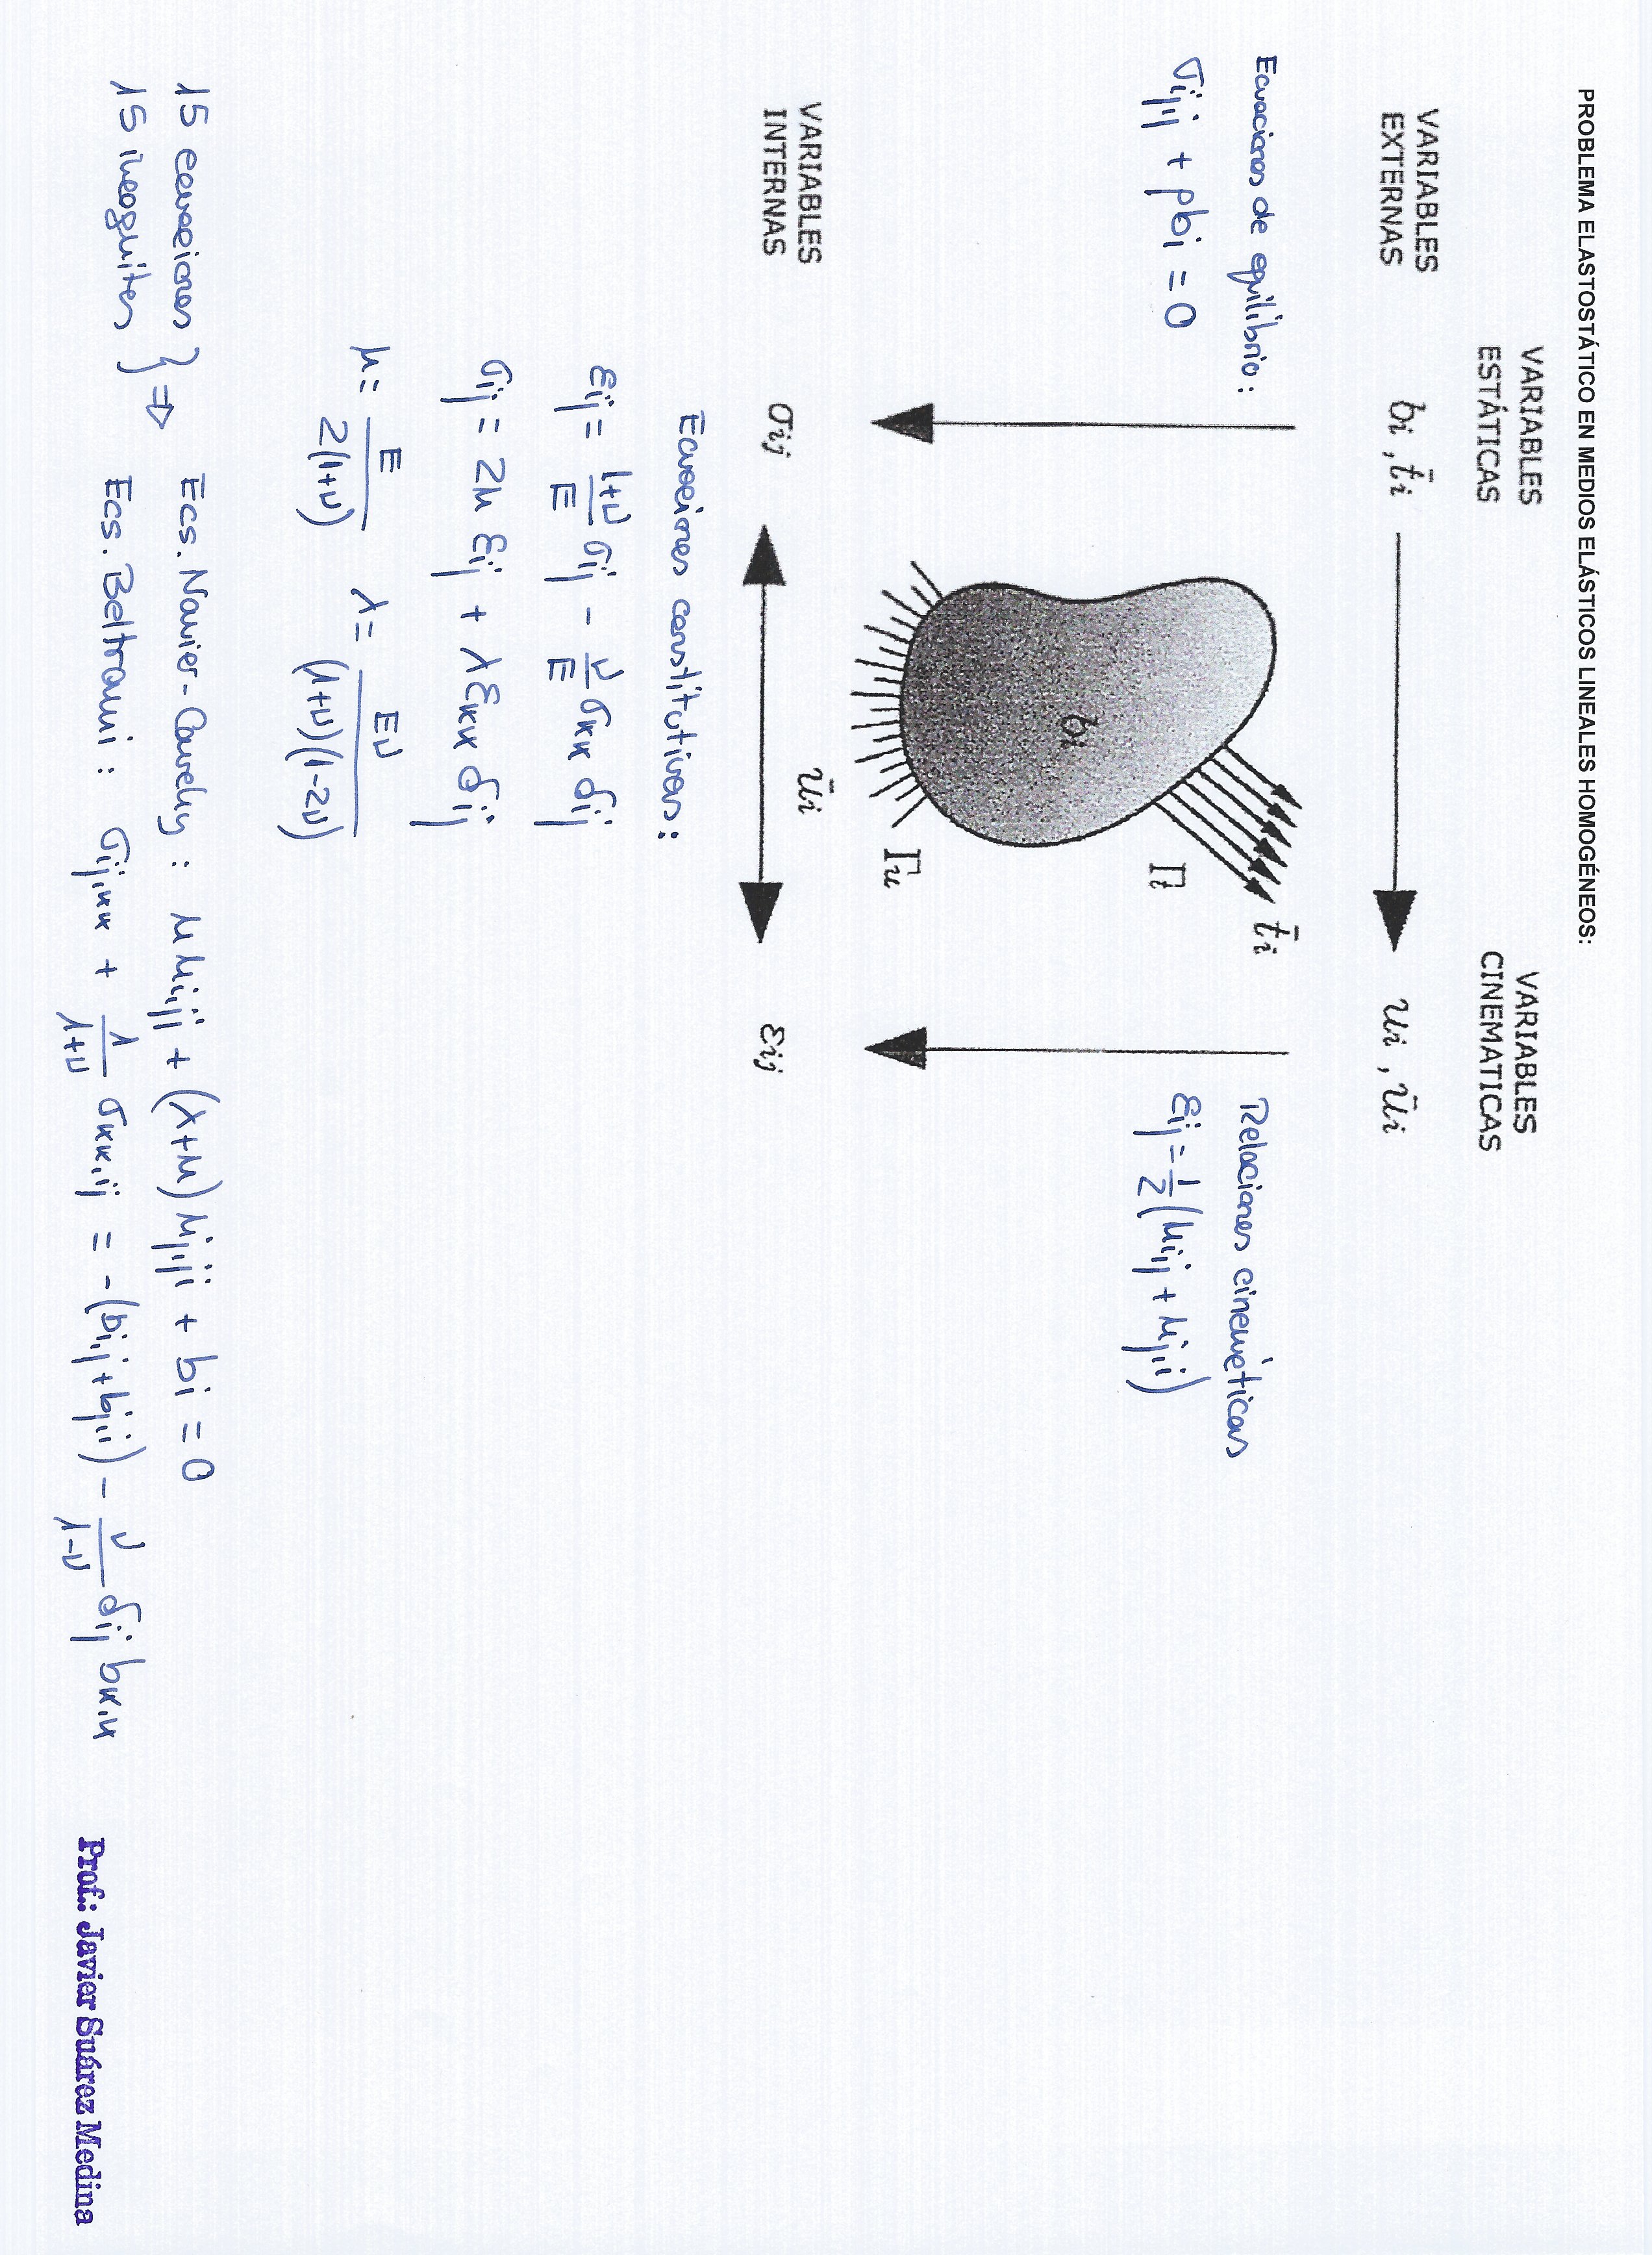 PROBLEMA ELASTOSTÁTICO EN MEDIOS ELÁSTICOS LINEALES HOMOGÉNEOS:
VARIABLES
ESTÁTICAS
VARIABLES
CINEMATICAS
VARIABLES
EXTERNAS
bi , t̄i
ui , ūi
Ecuaciones de equilibrio:
σij,j + ρbi = 0
t̄i
Γt
bi
Γu
ūi
Relaciones cinemáticas
εij = 1/2 (ui,j + uj,i)
VARIABLES
INTERNAS
σij
εij
Ecuaciones constitutivas:
εij = (1+ν)/E σij - ν/E σκκ δij
σij = 2μ εij + λ εκκ δij
μ = E/(2(1+ν))   λ = Eν/((1+ν)(1-2ν))
15 ecuaciones
15 incognitas } ⇒
Ecs. Navier-Cauchy : μ ui,jj + (λ+μ) uj,ji + bi = 0
Ecs. Beltrami : σij,κκ + 1/(1+ν) σκκ,ij = -(bi,j + bj,i) - ν/(1-ν) δij bκ,κ
Prof.: Javier Suárez Medina